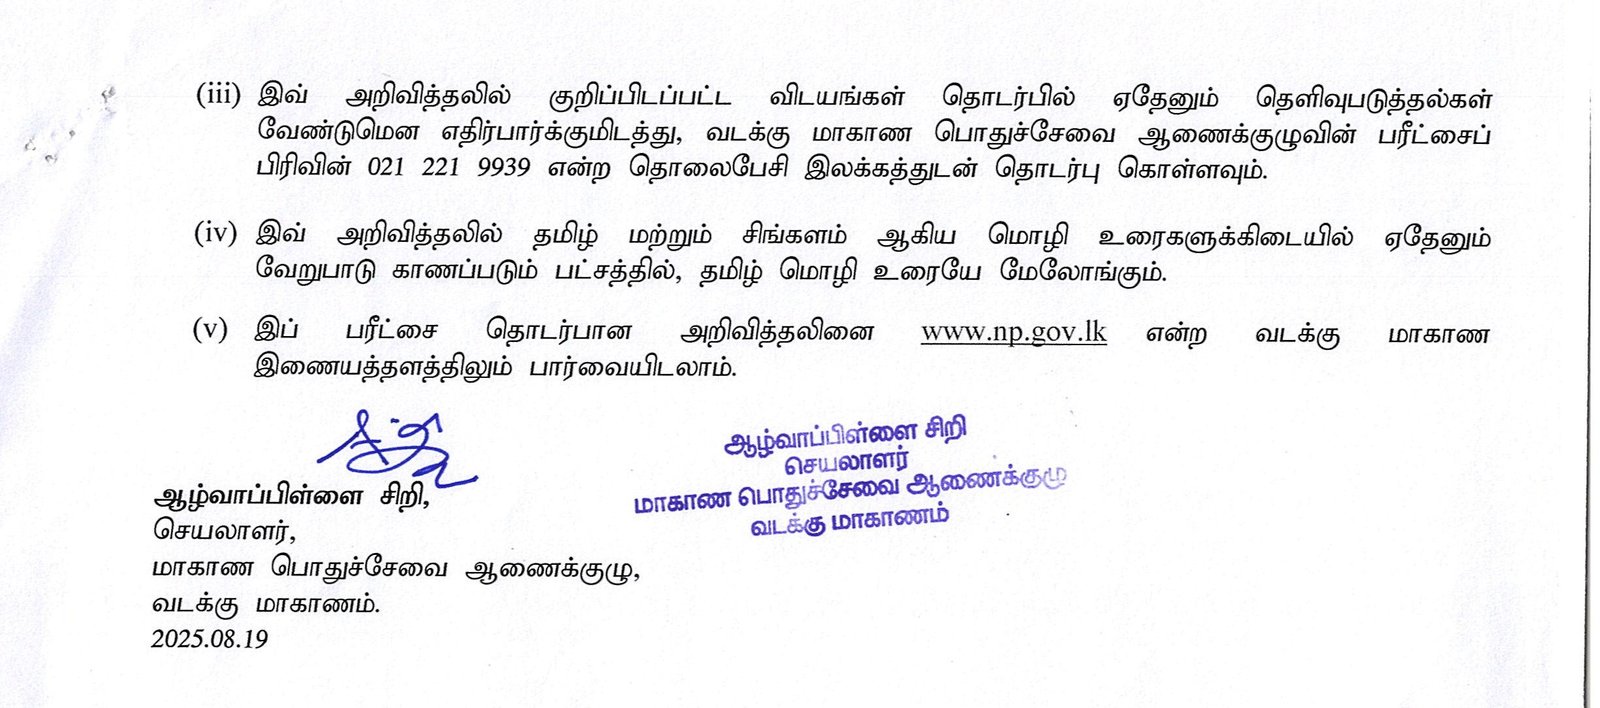 (iii) இவ் அறிவித்தலில் குறிப்பிடப்பட்ட விடயங்கள் தொடர்பில் ஏதேனும் தெளிவுபடுத்தல்கள்
வேண்டுமென எதிர்பார்க்குமிடத்து, வடக்கு மாகாண பொதுச்சேவை ஆணைக்குழுவின் பரீட்சைப்
பிரிவின் 021 221 9939 என்ற தொலைபேசி இலக்கத்துடன் தொடர்பு கொள்ளவும்.
(iv) இவ் அறிவித்தலில் தமிழ் மற்றும் சிங்களம் ஆகிய மொழி உரைகளுக்கிடையில் ஏதேனும்
வேறுபாடு காணப்படும் பட்சத்தில், தமிழ் மொழி உரையே மேலோங்கும்.
(v) இப் பரீட்சை தொடர்பான அறிவித்தலினை www.np.gov.lk என்ற வடக்கு மாகாண
இணையத்தளத்திலும் பார்வையிடலாம்.
ஆழ்வாப்பிள்ளை சிறி,
செயலாளர்,
மாகாண பொதுச்சேவை ஆணைக்குழு,
வடக்கு மாகாணம்.
2025.08.19
ஆழ்வாப்பிள்ளை சிறி
செயலாளர்
மாகாண பொதுச்சேவை ஆணைக்குழு
வடக்கு மாகாணம்